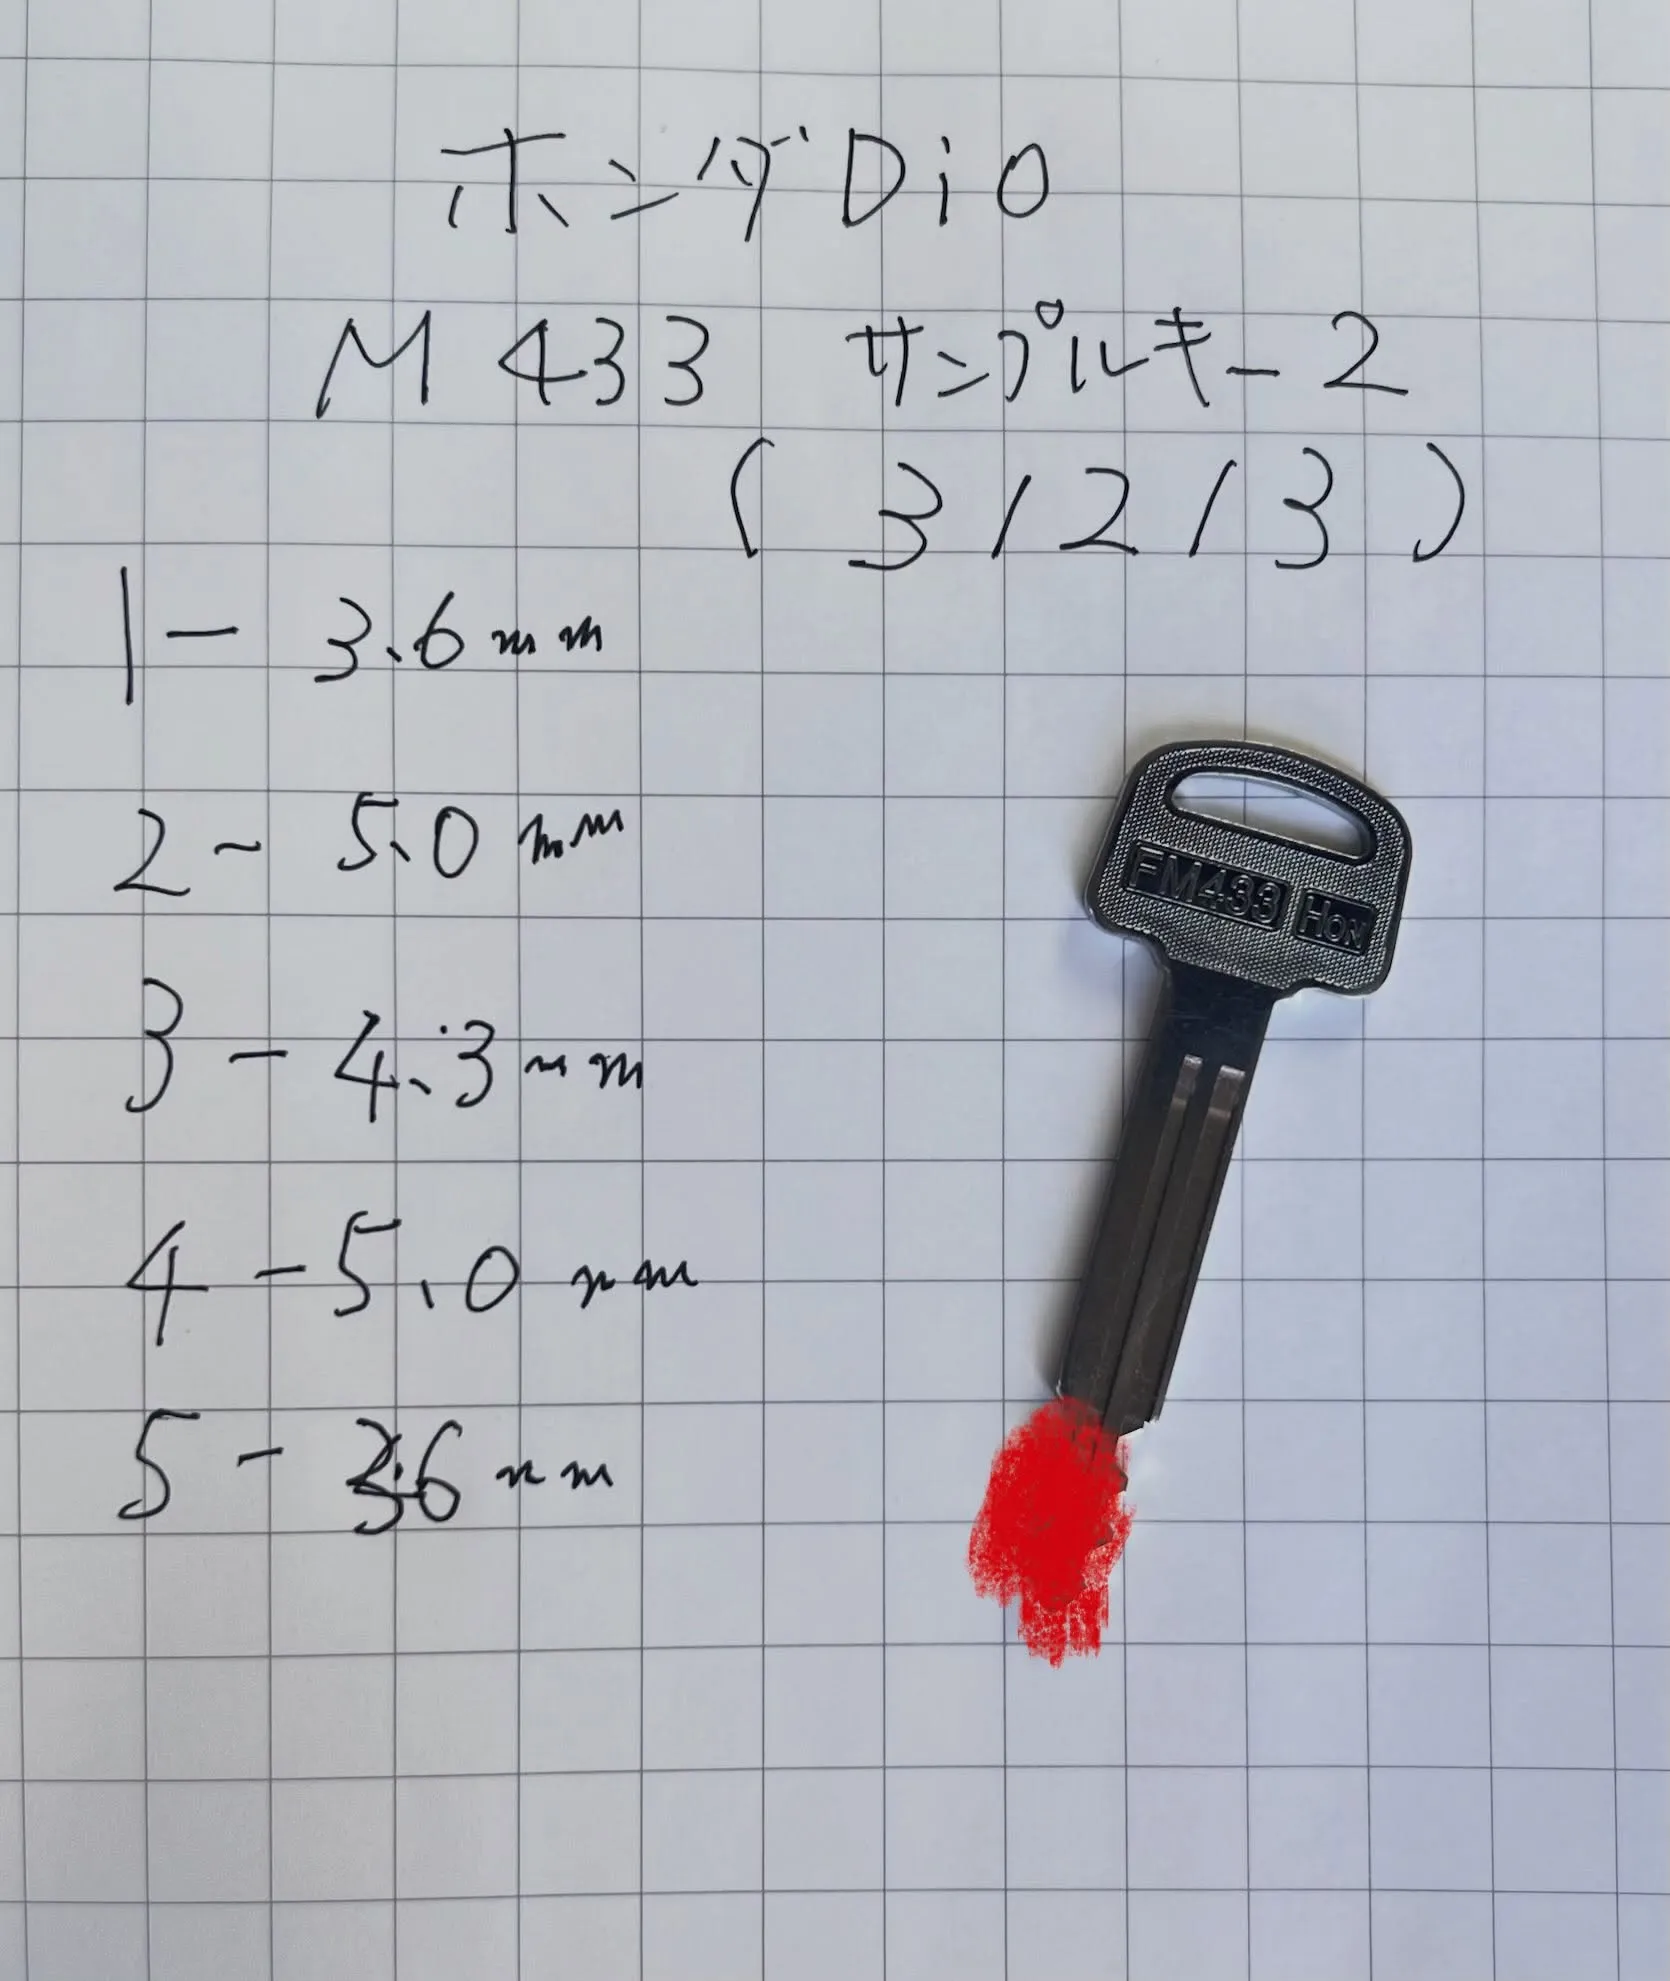 ホンダDio
M433 サンプルキー2
(3/2/3)
1- 3.6mm
2- 5.0mm
3- 4.3mm
4-5.0mm
5- 3.6mm
FM433 HON